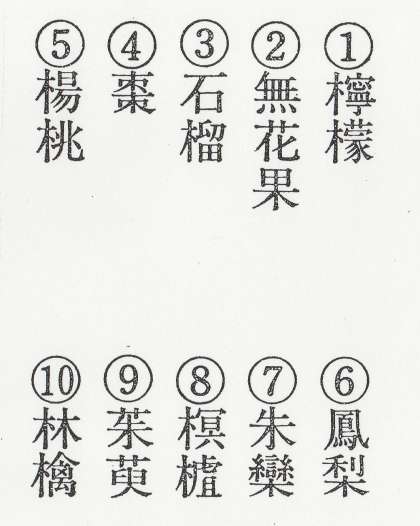 ①檸檬
②無花果
③石榴
④棗
⑤楊桃
⑥鳳梨
⑦朱欒
⑧榠樝
⑨茱萸
⑩林檎